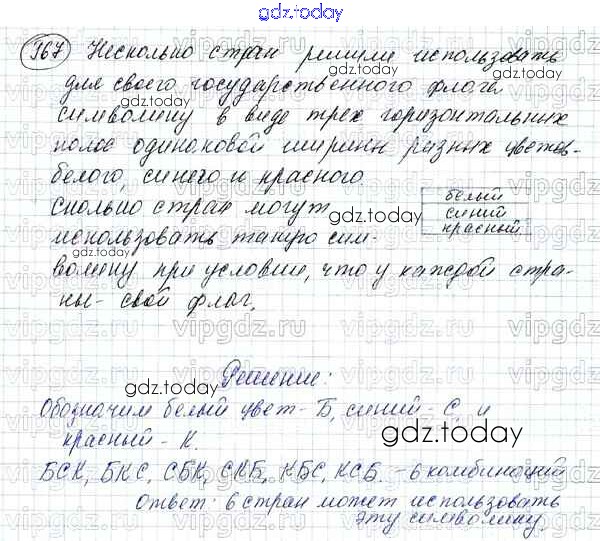 gdz.today
967 Несколько стран решили использовать
для своего государственного флага
символику в виде трех горизонтальных
полос одинаковой ширины разных цветов-
белого, синего и красного.
Сколько стран могут
использовать такую сим-
волику при условии, что у каждой стра-
ны- свой флаг.
белый
синий
красный
Решение:
Обозначим белый цвет- Б, синий- С, и
красный- К.
БСК, БКС, СБК, СКБ, КБС, КСБ. - 6 комбинаций
Ответ: 6 стран может использовать
эту символику.
gdz.today
gdz.today
gdz.today
gdz.today
gdz.today
gdz.today
gdz.today
vipgdz.ru